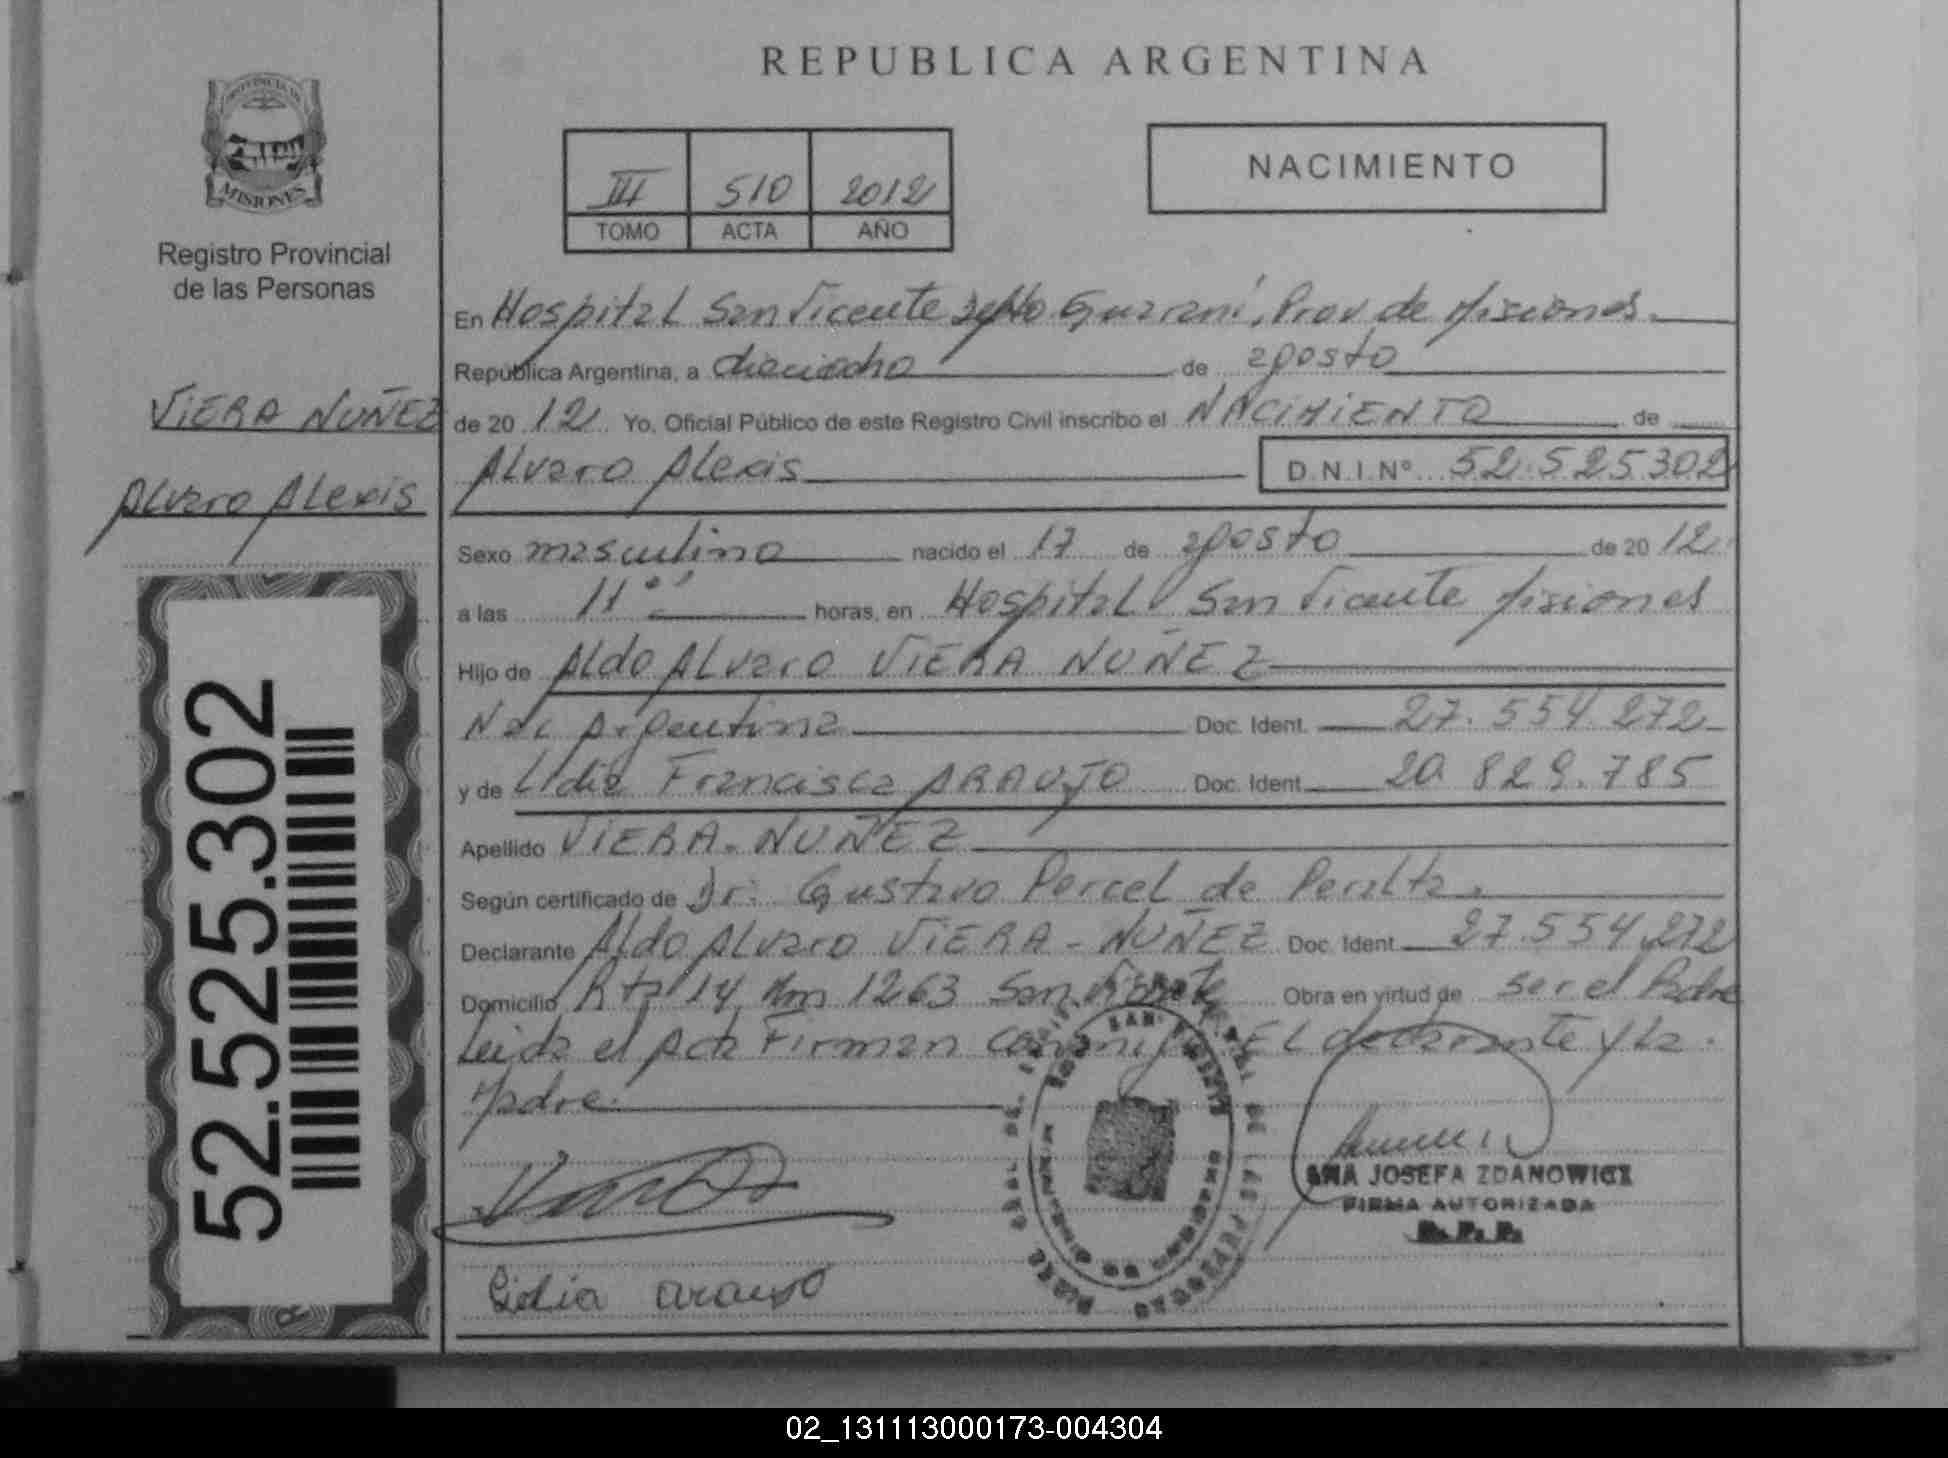 REPUBLICA ARGENTINA
PROVINCIA DE
MISIONES
Registro Provincial
de las Personas
III 510 2012
TOMO ACTA AÑO
NACIMIENTO
VIERA NUÑEZ
Alvaro Alexis
52.525.302
En Hospital San Vicente Guaraní, Prov de Misiones.
República Argentina, a dieciocho de agosto
de 20 12 Yo, Oficial Público de este Registro Civil inscribo el NACIMIENTO de
Alvaro Alexis D.N.I.Nº 52.525302
Sexo masculino nacido el 17 de agosto de 20 12
a las 11 horas, en Hospital San Vicente Misiones
Hijo de Aldo Alvaro VIERA NUÑEZ
Nac Argentina Doc. Ident. 27.554.272
y de Lidia Francisca ARAUJO Doc. Ident. 20.829.785
Apellido VIERA-NUÑEZ
Según certificado de Dr. Gustavo Percel de Peralta.
Declarante Aldo Alvaro VIERA-NUÑEZ Doc. Ident. 27.554.272
Domicilio Rta 14 Km 1263 San Vicente Obra en virtud de ser el Padre
Leida el Acta Firman conmigo EL declarante y la
Madre.
ANA JOSEFA ZDANOWICZ
FIRMA AUTORIZADA
R.P.P.
Lidia araujo
02_131113000173-004304